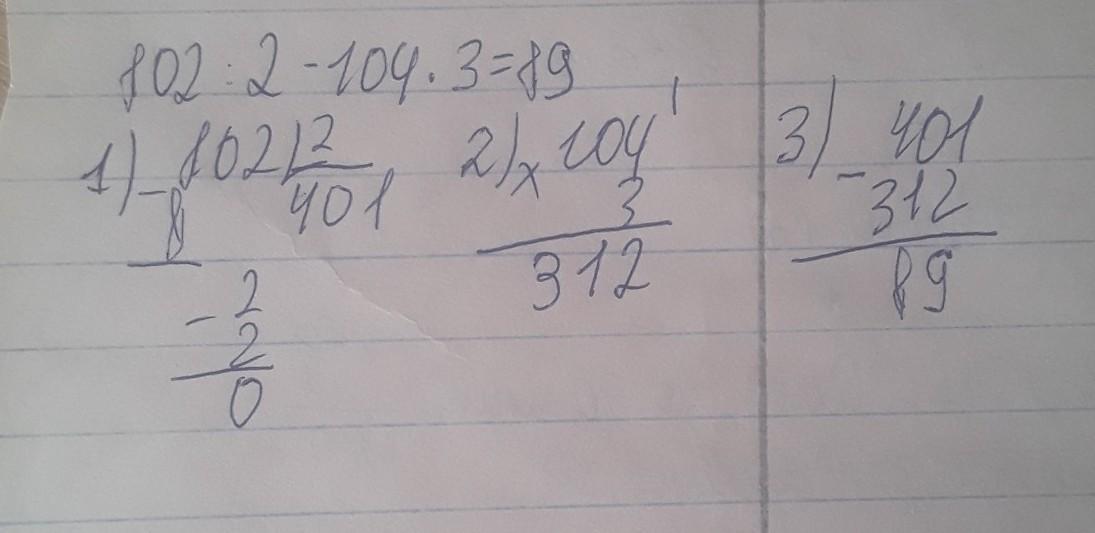 802 : 2 - 104 · 3 = 89
1) - 802 | 2    2) x 104 1    3) - 401
8    401    3    312
312    89
- 2
2
0